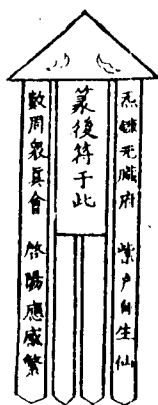 炁鍊臟府 紫戶自生仙
篆後符于此
數周衆真會 啓應感繁